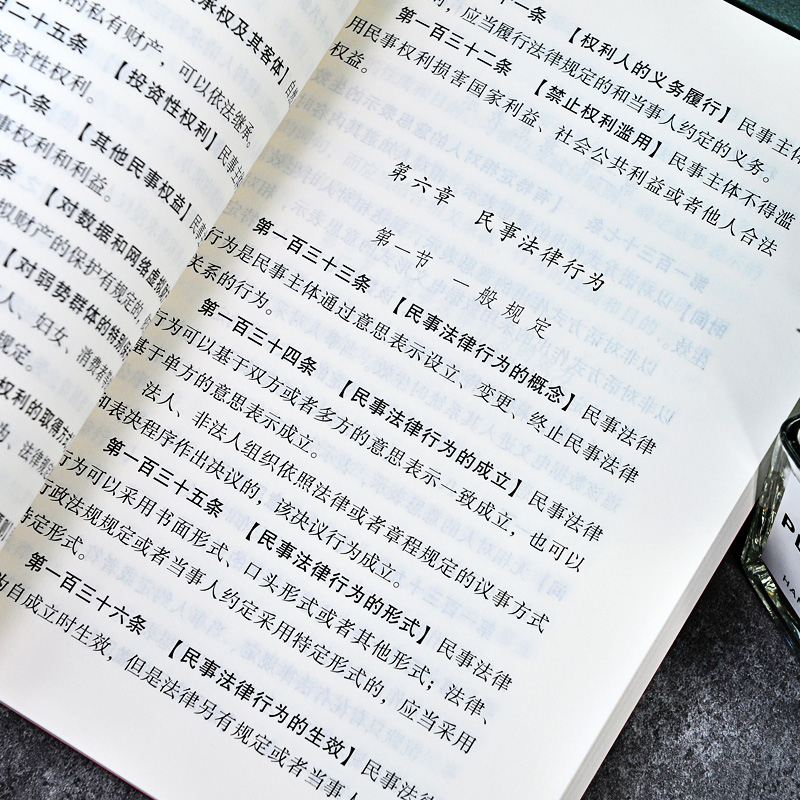 承权及其客体】
的私有财产，可以依法继承。
二十五条 【投资性权利】民事主
投资性权利。
十六条 【其他民事权益】民事
事权利和利益。
条 【对数据和网络虚拟
拟财产的保护有规定的，
【对弱势群体的特别
人、妇女、消费者
规定。
权利的取得方
为、法律
十一条 【权利人的义务履行】民事主体
时，应当履行法律规定的和当事人约定的义务。
第一百三十二条 【禁止权利滥用】民事主体不得滥
用民事权利损害国家利益、社会公共利益或者他人合法
权益。
第六章 民事法律行为
第一节 一般规定
第一百三十三条 【民事法律行为的概念】民事法律
行为是民事主体通过意思表示设立、变更、终止民事法律
关系的行为。
第一百三十四条 【民事法律行为的成立】民事法律
行为可以基于双方或者多方的意思表示一致成立，也可以
基于单方的意思表示成立。
法人、非法人组织依照法律或者章程规定的议事方式
和表决程序作出决议的，该决议行为成立。
第一百三十五条 【民事法律行为的形式】民事法律
行为可以采用书面形式、口头形式或者其他形式；法律、
行政法规规定或者当事人约定采用特定形式的，应当采用
特定形式。
第一百三十六条 【民事法律行为的生效】民事法律
为自成立时生效，但是法律另有规定或者当事人